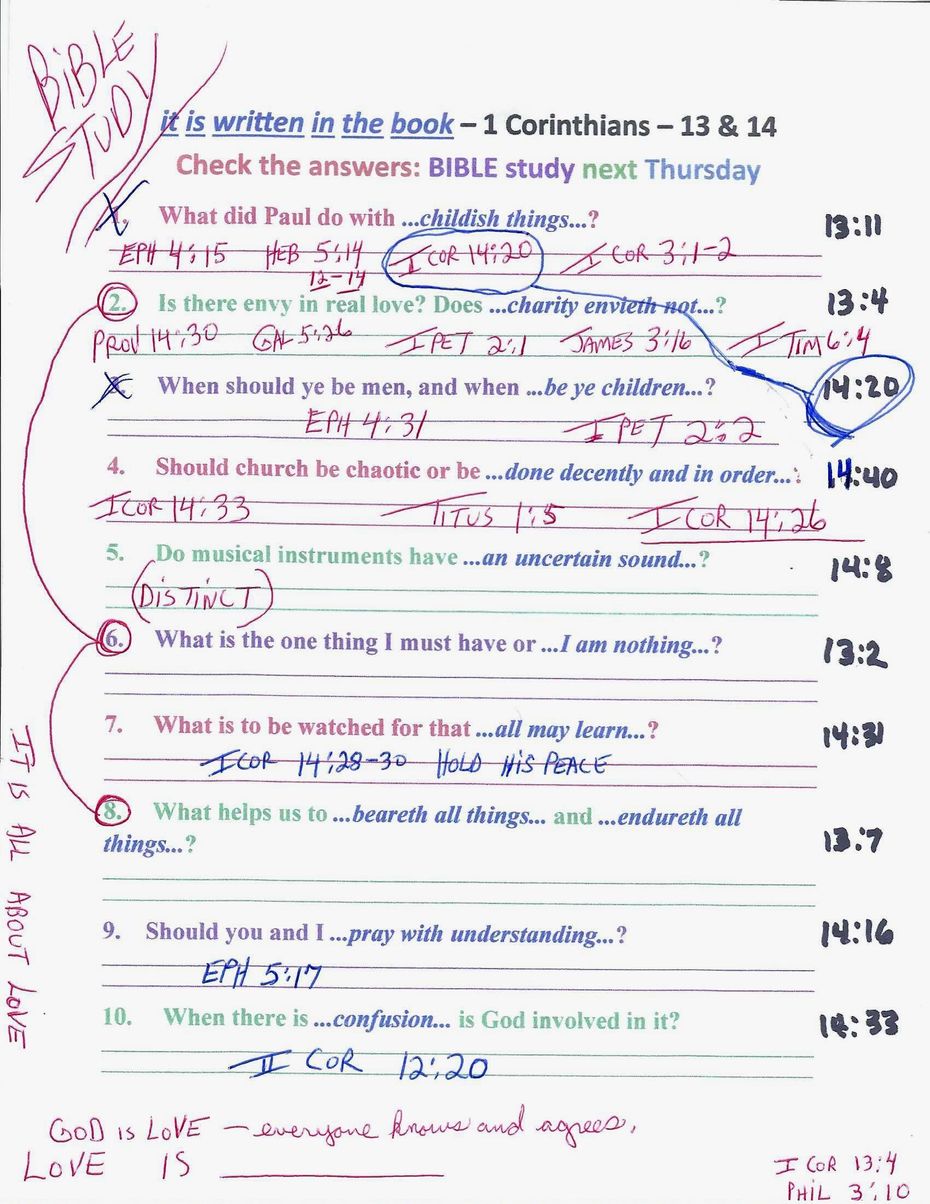 BiBLE
STUDY
it is written in the book – 1 Corinthians – 13 & 14
Check the answers: BIBLE study next Thursday
1. What did Paul do with ...childish things...? 13:11
EPH 4:15 HEB 5:14 I COR 14:20 I COR 3:1-2
12-14
2. Is there envy in real love? Does ...charity envieth not...? 13:4
PROV 14:30 GAL 5:26 I PET 2:1 JAMES 3:16 I TIM 6:4
When should ye be men, and when ...be ye children...? 14:20
EPH 4:31 I PET 2:2
4. Should church be chaotic or be ...done decently and in order...: 14:40
I COR 14:33 TITUS 1:5 I COR 14:26
5. Do musical instruments have ...an uncertain sound...? 14:8
(DISTINCT)
6. What is the one thing I must have or ...I am nothing...? 13:2
7. What is to be watched for that ...all may learn...? 14:31
I COR 14:28-30 HOLD HiS PEACE
8. What helps us to ...beareth all things... and ...endureth all
things...? 13:7
9. Should you and I ...pray with understanding...? 14:16
EPH 5:17
10. When there is ...confusion... is God involved in it? 14:33
II COR 12:20
IT IS ALL ABOUT LOVE
GOD iS LOVE – everyone knows and agrees.
LOVE IS ____________
I COR 13:4
PHIL 3:10